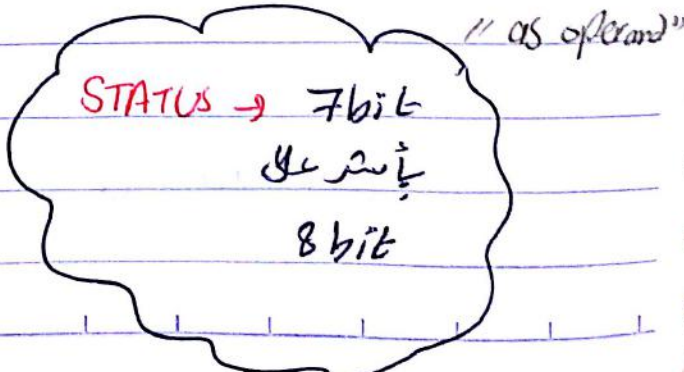 " as operand"
STATUS → 7bit
بأشر على
8 bit